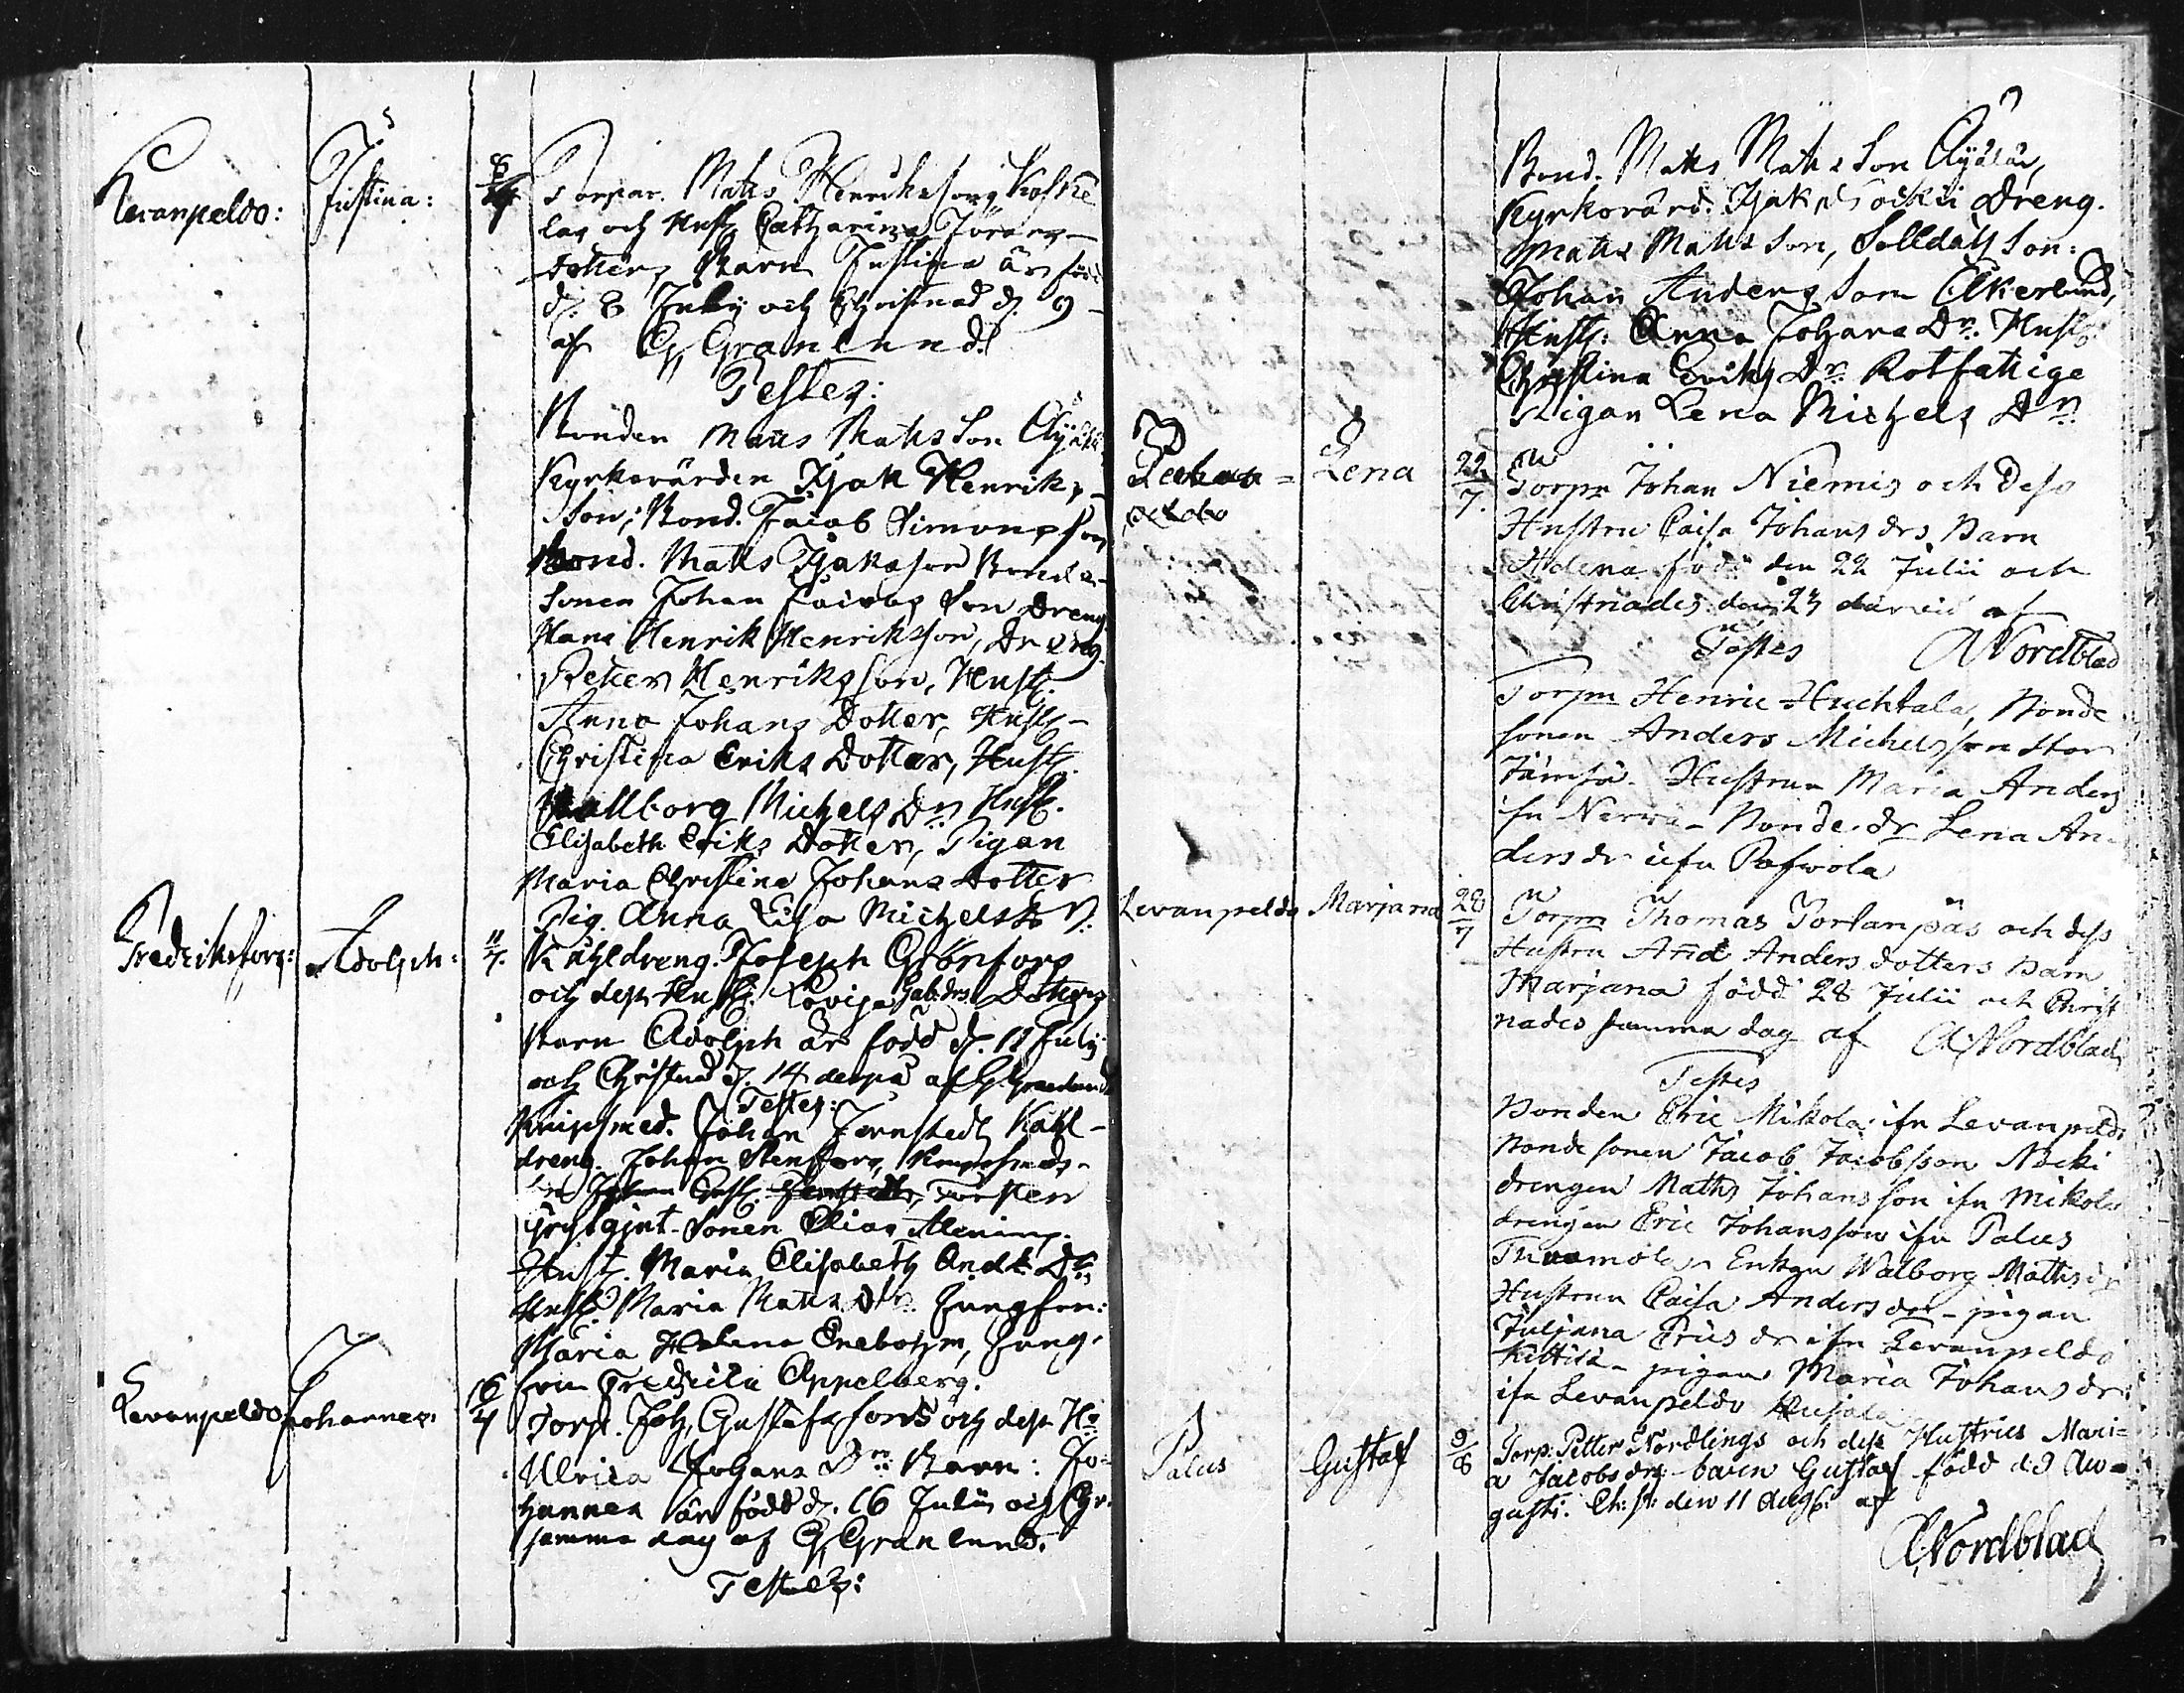 Levanpeldo: Justina: 8/7 Torpar. Mats Henrikssons Koske
las och Hust. Catharina Görans
dotters Barn Justina är född
d. 8 July och Christnad d. 9
af G, Granlund.
Testes:
Bonden Mats Mats Son Äyälä
Kyrkovärden Isak Henriks
Son; Bond. Jacob Simons son
Bond. Mats Isaksson Bonde
Sonen Johan Son Dreng
Hans Henrik Henriksson, Dreng
Peter Henriksson, Hust.
Anna Johans Dotter, Hust.
Christina Eriks Dotter, Hust.
Wallborg Michels Dr. Hust.
Elisabeth Eriks Dotter, Pigan
Maria Christina Johans Dotter
Pig. Anna Lisa Michels Dr.
Fredriksfors: Adolph: 11/7. Kohldreng. Joseph Grönfors
och dess Hust. Lovisa Dotters
Barn Adolph är född d. 11 July
och Christnad d. 14 af G. Granlund
Testes:
Knipsmed. Johan Jernstedt Kohl-
dreng. Johan Stenfors,
Torsten
Sonen Elias
Hust. Maria Elisabeth And. Dr.
Hust. Maria Mats Dr. Jungfru:
Maria Helena Enebohm, Jung-
frun Fredrica Appelberg.
Levanpeldo Johannes. 16/7 Torp. Joh, Gustafssons och dess H.
Ulrica Johans Dr. Barn: Jo-
hannes är född d. 16 Julii och Chr.
samma dag af G, Granlund.
Testes:
Bond. Mats Mats Son Äyälän,
Kyrkovärd. Isak Dreng.
Mats Mats Son, Solldats Son:
Johan Anders Son Åkerlund,
Hust: Anna Johans Dr. Hust.
Christina Eriks Dr. Rotfattige
Pigan Lena Michels Dr.
Levan=
peldo Lena 22/7. Torpn Johan Niemis och Dess
Hustru Caisa Johans drs Barn
Helena född den 22 Julii och
Christnades den 23 af
Testes A Nordblad
Torpn Henric Huchtala, Bonde
sonen Anders Michelsson Stor
Jämsä. Hustrun Maria Anders
ifn Bonde dr Lena An-
ders dr ifn
Levanpeldo Marjana 28/7 Torpn Thomas och dess
Hustru And Anders dotters Barn
Marjana född 28 Julii och Christ
nades samma dag af A Nordblad
Testes
Bonden Eric Mikola ifn Levanpeldo
Bonde sonen Jacob Jacobsson
drengen Mats Johansson ifn Mikola
drengen Eric Johansson ifn Palus
Enkan Walborg Mats dr
Hustrun Caisa Anders dr - pigan
Juljana dr ifn Levanpeldo
pigan Maria Johans dr
ifn Levanpeldo
Palus Gustaf 9/8 Torp: Petter Nordlings och dess Hustrus Mari=
a Jacobs drs barn Gustaf född d. 9 Au=
gusti. Ch:st: den 11 Aug: af
A Nordblad